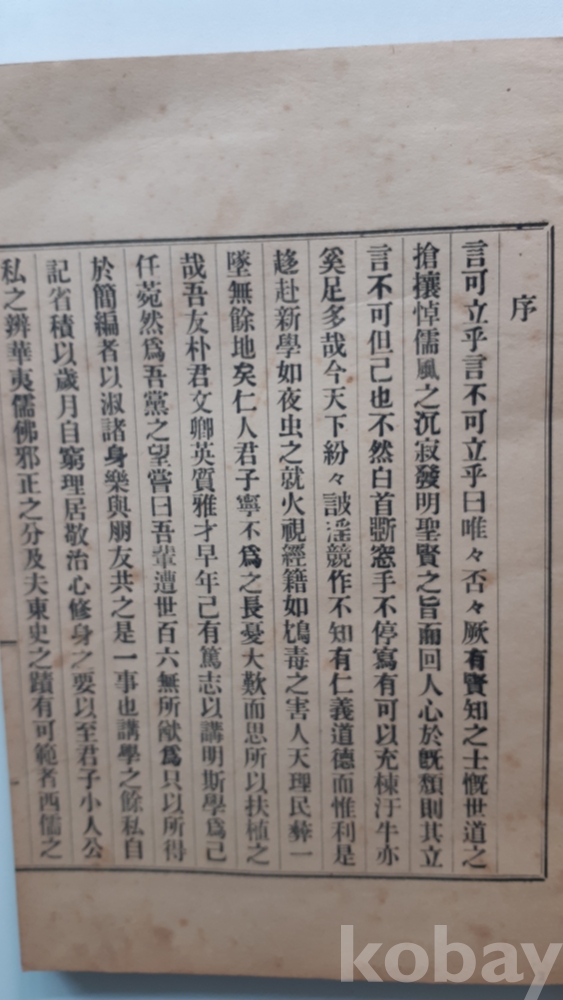 序
言可立乎言不可立乎曰唯々否々厥有賢知之士慨世道之
搶攘悼儒風之沉寂發明聖賢之旨而回人心於旣頹則其立
言不可但已也不然白首斲窓手不停寫有可以充棟汙牛亦
奚足多哉今天下紛々詖淫競作不知有仁義道德而惟利是
趍赴新學如夜虫之就火視經籍如鴆毒之害人天理民彝一
墜無餘地矣仁人君子寧不爲之長憂大歎而思所以扶植之
哉吾友朴君文卿英質雅才早年已有篤志以講明斯學爲己
任菀然爲吾黨之望嘗曰吾輩遭世百六無所猷爲只以所得
於簡編者以淑諸身樂與朋友共之是一事也講學之餘私自
記省積以歲月自窮理居敬治心修身之要以至君子小人公
私之辨華夷儒佛邪正之分及夫東史之蹟有可範者西儒之
kobay